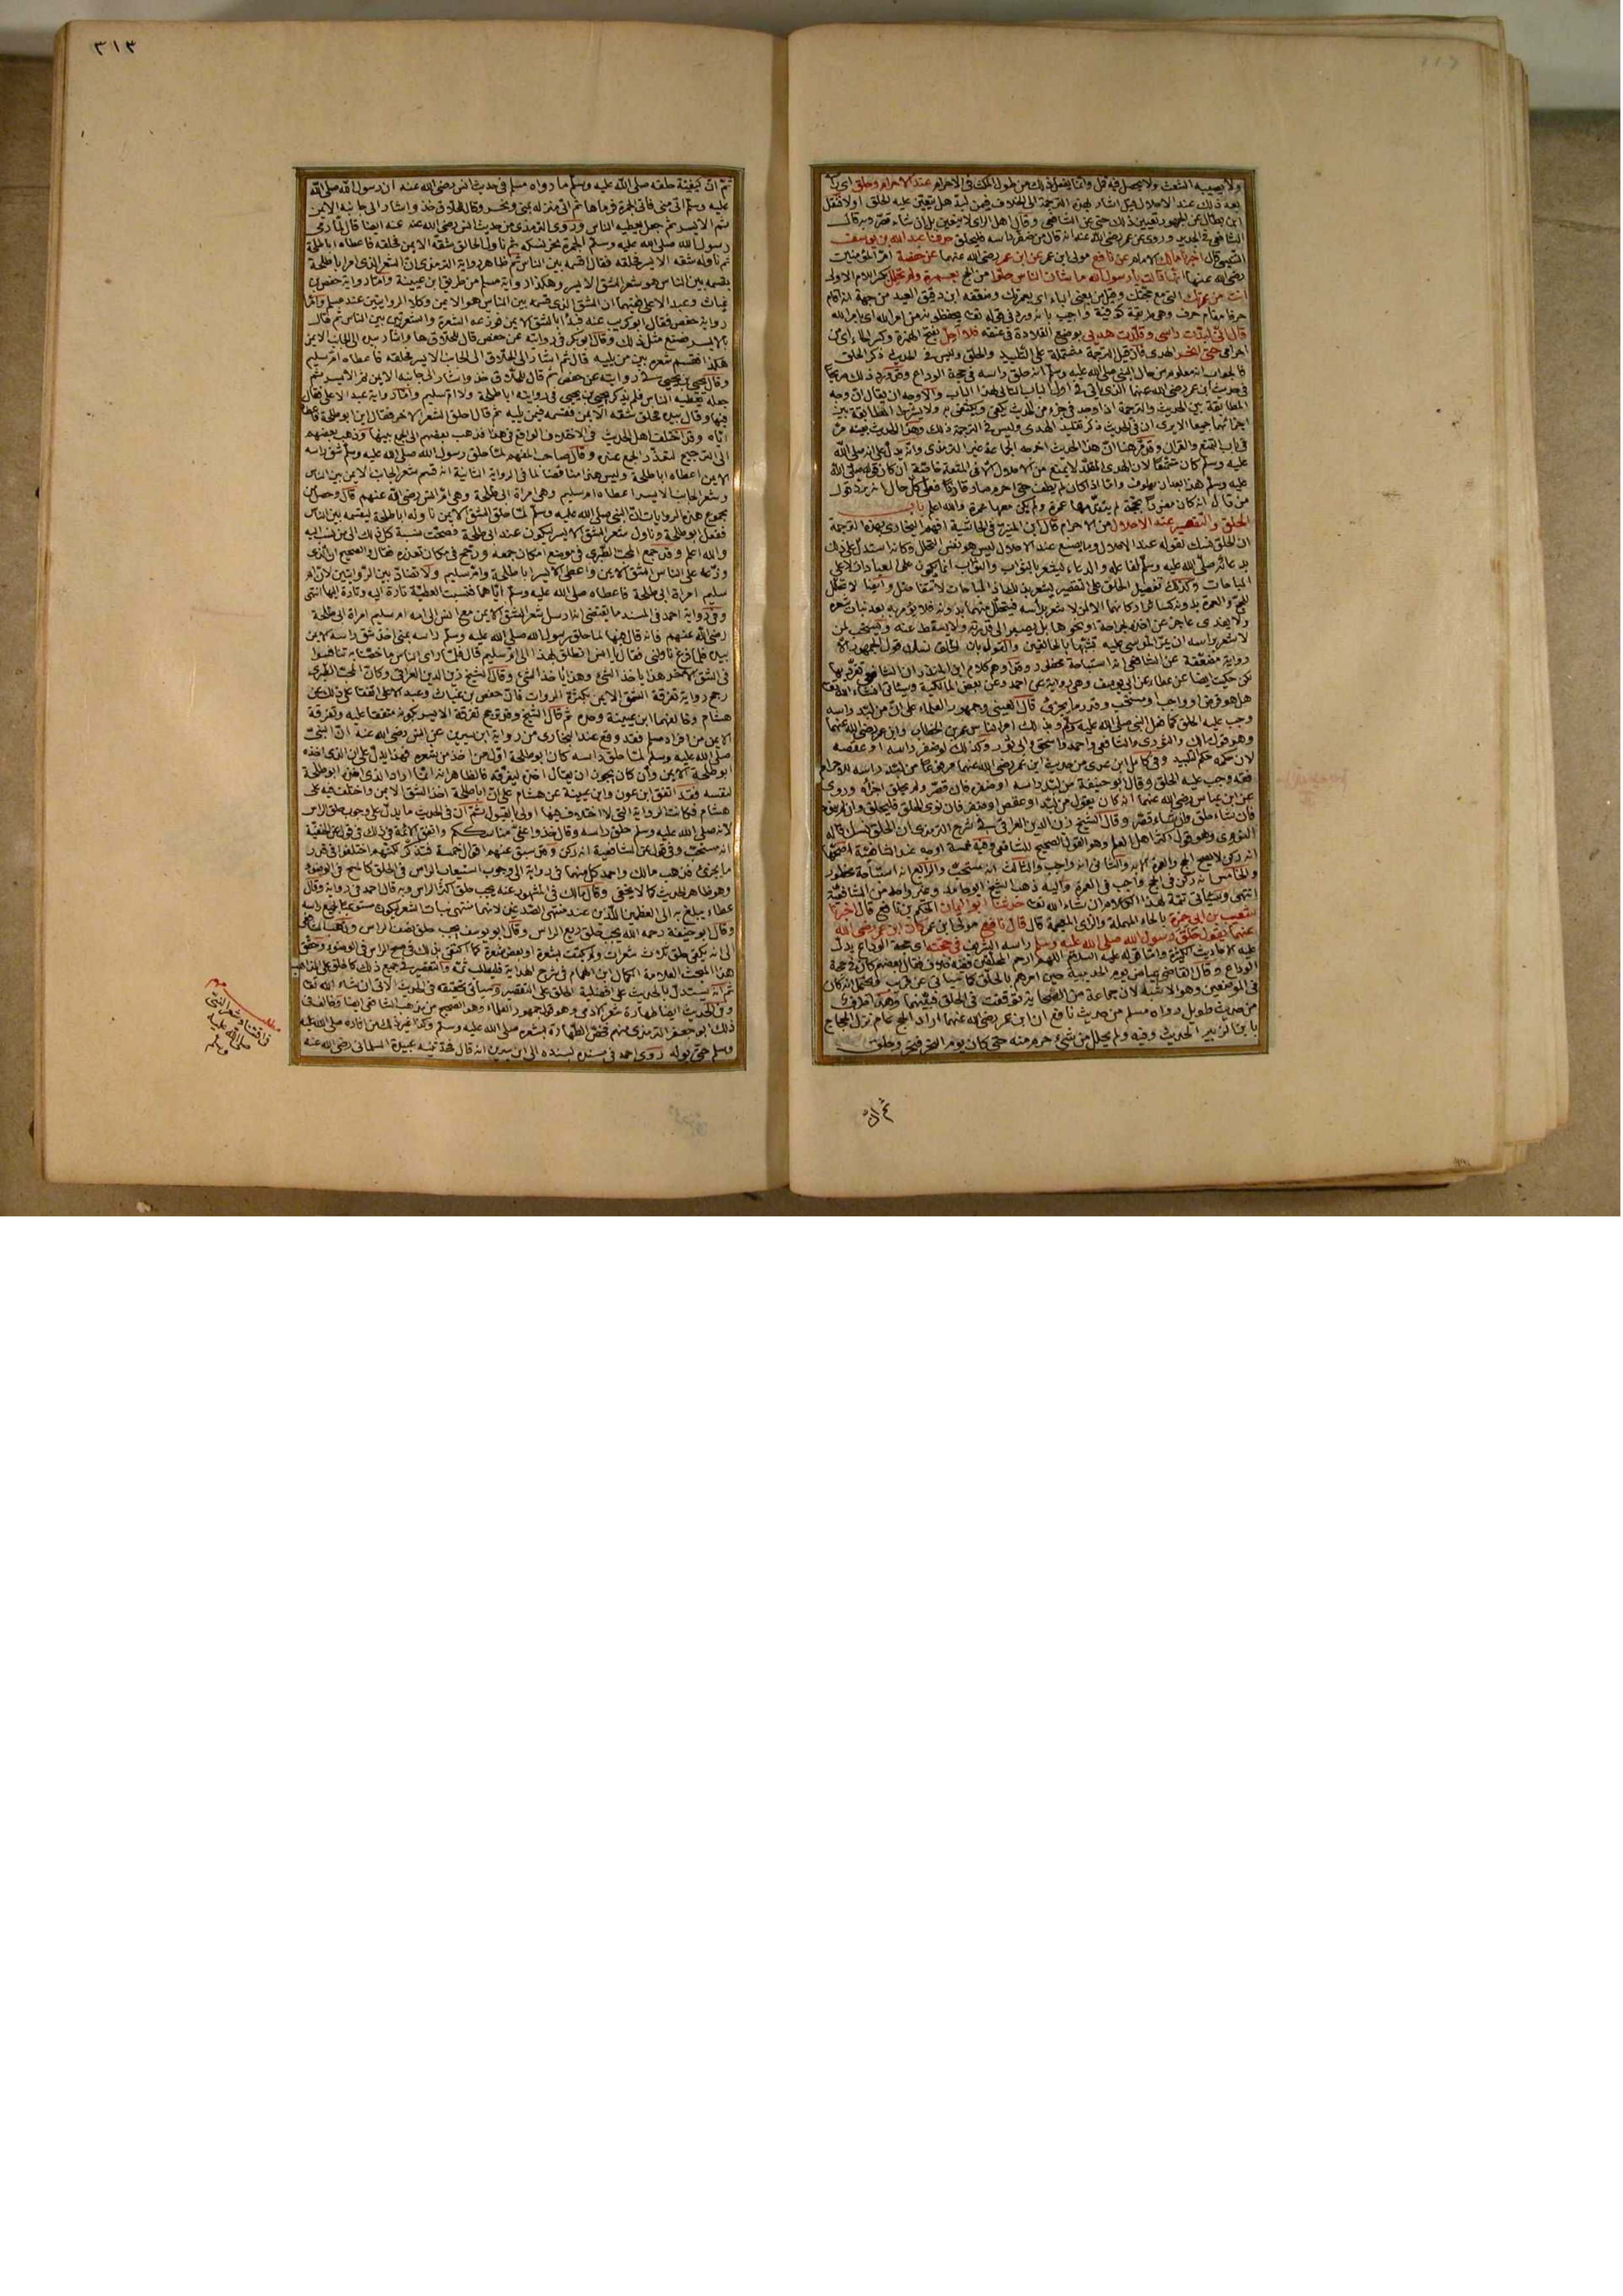 ٣١٣
ولا يصيبه الشعث ولا يحصل فيه قمل وانما يفعل ذلك من يطول المكث فى الاحرام عند الاحرام وحلق اى رأسه
بعد ذلك عند الاحلال قيل اشار بهذه الترجمة الى الخلاف فيمن لبد هل يتعين عليه الحلق او لا فنقل
ابن بطال عن الجمهور تعيين ذلك حتى عن الشافعى وقال اهل الراى لا يتعين بل ان شاء قصر وبه قال
الشافعى فى الجديد وروى عن عمر رضى الله عنه انه قال من ضفر رأسه فليحلق حدثنا عبد الله بن يوسف
التنيسى قال اخبرنا مالك الامام عن نافع مولى ابن عمر عن ابن عمر رضى الله عنهما عن حفصة ام المؤمنين
رضى الله عنها انها قالت يا رسول الله ما شأن الناس حلوا من الحج بعمرة ولم تحلل بكسر اللام الاولى
انت من عمرتك التى مع حجتك وقيل من بمعنى الباء اى بعمرتك وضعفه ابن دقيق العيد من جهة انه اقام
حرفا مقام حرف وهى طريقة كوفية واجيب بانه ورد فى قوله تعالى يحفظونه من امر الله اى بامر الله
قال انى لبدت راسى وقلدت هديى بوضع القلادة فى عنقه فلا احل بفتح الهمزة وكسر الحاء اى من
احرامى حتى انحر الهدى فان قيل الترجمة مشتملة على التلبيد والحلق وليس فى الحديث ذكر الحلق
فالجواب انه معلوم من حال النبى صلى الله عليه وسلم انه حلق راسه فى حجة الوداع وقد ورد ذلك صريحا
فى حديث ابن عمر رضى الله عنهما الذى ياتى فى اول الباب التالى لهذا الباب والاوجه ان يقال ان وجه
المطابقة بين الحديث والترجمة اذا وجد فى جزء من الحديث يكفى ويكتفى به ولا يشترط المطابقة بين
اجزائهما جميعا الا يرى ان فى الحديث ذكر تقليد الهدى وليس فى الترجمة ذلك وهذا الحديث بعينه مر
فى باب التمتع والقران وقد مر هنا ان هذا الحديث اخرجه الجماعة غير الترمذى وانه يدل على انه صلى الله
عليه وسلم كان متمتعا لان الهدى المقلد لا يمنع من الاحلال الا فى المتعة خاصة
من قال انه كان مفردا بحجة لم يتقدمها عمرة ولم يكن معها عمرة والله اعلم باب
الحلق والتقصير عند الاحلال من الاحرام قال ابن المنير فى الحاشية افهم البخارى بهذه الترجمة
ان الحلق نسك لقوله عند الاحلال وما يصنع عند الاحلال ليس هو نفس التحلل وكانه استدل على ذلك
بدعائه صلى الله عليه وسلم لفاعله والدعاء يشعر بالثواب والثواب انما يكون على العبادات لا على
المباحات وكذلك تفضيل الحلق على التقصير يشعر بذلك اذ المباحات لا تتفاضل وايضا لا تحلل
للحج والعمرة بدونه كسائر اركانهما الا لمن لا شعر برأسه فيتحلل منهما بدونه فلا يؤمر به بعد نبات شعره
لا شعر برأسه ان يمر الموسى عليه تشبها بالحالقين والقول بان الحلق نسك قول الجمهور الا
رواية مضعفة عن الشافعى انه استباحة محظور وقد اوهم كلام ابن المنذر ان الشافعى تفرد بها
لكن حكيت ايضا عن عطاء وعن ابى يوسف وهى رواية عن احمد وعن بعض المالكية
وجب عليه الحلق كما فعل النبى صلى الله عليه وسلم وبذلك امر الناس عمر بن الخطاب وابن عمر رضى الله عنهما
وهو قول مالك والثورى والشافعى واحمد واسحق وابى ثور وكذلك لو ضفر راسه او عقصه
فقد وجب عليه الحلق وقال ابو حنيفة من لبد راسه او ضفره فان قصر ولم يحلق اجزأه وروى
عن ابن عباس رضى الله عنهما انه كان يقول من لبد او عقص او ضفر فان نوى الحلق فليحلق وان لم ينوه
فان شاء حلق وان شاء قصر وقال الشيخ زين الدين العراقى فى شرح الترمذى ان الحلق نسك قاله
النووى وهو قول اكثر اهل العلم وهو القول الصحيح للشافعى وفيه خمسة اوجه عند الشافعية اصحها
انه ركن لا يصح الحج والعمرة الا به والثانى انه واجب والثالث انه مستحب والرابع انه استباحة محظور
والخامس انه ركن فى الحج واجب فى العمرة واليه ذهب الشيخ ابو حامد وغير واحد من الشافعية
انتهى وسياتى تتمة لهذا الكلام ان شاء الله تعالى حدثنا ابو اليمان الحكم بن نافع قال اخبرنا
شعيب بن ابى حمزة بالحاء المهملة والزاى المعجمة قال قال نافع مولى ابن عمر كان ابن عمر رضى الله
عنهما يقول حلق رسول الله صلى الله عليه وسلم راسه الشريف فى حجته اى حجة الوداع يدل
عليه الاحاديث الكثيرة واما قوله عليه السلام اللهم ارحم المحلقين ففيه خلاف فقال بعضهم كان فى حجة
الوداع وقال القاضى عياض يوم الحديبية حين امرهم بالحلق كما سياتى عن قريب
فى الموضعين وهو الاشبه لان جماعة من الصحابة توقفت فى الحلق فيهما وهذا طرف
من حديث طويل رواه مسلم من حديث نافع ان ابن عمر رضى الله عنهما اراد الحج عام نزل الحجاج
بابن الزبير الحديث وفيه ولم يحلل من شىء حرم منه حتى كان يوم النحر فنحر وحلق
ثم ان
ثم ان كيفية حلقه صلى الله عليه وسلم ما رواه مسلم فى حديث انس رضى الله عنه ان رسول الله صلى الله
عليه وسلم اتى منى فاتى الجمرة فرماها ثم اتى منزله بمنى ونحر وقال للحلاق خذ واشار الى جانبه الايمن
ثم الايسر ثم جعل يعطيه الناس وروى الترمذى من حديث انس رضى الله عنه ايضا قال لما رمى
رسول الله صلى الله عليه وسلم الجمرة نحر نسكه ثم ناول الحالق شقه الايمن فحلقه فاعطاه ابا طلحة
ثم ناوله شقه الايسر فحلقه فقال اقسمه بين الناس ثم ظاهر رواية الترمذى ان الشعر الذى امر ابا طلحة
بقسمه بين الناس هو شعر الشق الايسر وهكذا رواية مسلم من طريق ابن عيينة واما رواية حفص بن
غياث وعبد الاعلى ففيهما ان الشق الذى قسمه بين الناس هو الايمن وكلا الروايتين عند مسلم واما
رواية حفص فقال ابو كريب عنه فبدأ بالشق الايمن فوزعه الشعرة والشعرتين بين الناس ثم قال
بالايسر فصنع مثل ذلك وقال ابو بكر فى روايته عن حفص قال للحلاق ها واشار بيده الى الجانب الايمن
هكذا فقسم شعره بين من يليه قال ثم اشار الى الحلاق الى الجانب الايسر فحلقه فاعطاه ام سليم
وقال يحيى بن يحيى فى روايته عن حفص ثم قال للحلاق خذ واشار الى جانبه الايمن ثم الايسر ثم
جعله يعطيه الناس فلم يذكر يحيى بن يحيى فى روايته ابا طلحة ولا ام سليم واما رواية عبد الاعلى فقال
فيها وقال بيده فحلق شقه الايمن فقسمه فيمن يليه ثم قال احلق الشعر الاخر فقال اين ابو طلحة فاعطاه
اياه وقد اختلف اهل الحديث فى الاختلاف الواقع فى هذا فذهب بعضهم الى الجمع بينها وذهب بعضهم
الى الترجيح لتعذر الجمع عنده وقال صاحب المفهم لما حلق رسول الله صلى الله عليه وسلم شق راسه
الايمن اعطاه ابا طلحة وليس هذا مناقضا لما فى الرواية الثانية انه قسم شعر الجانب الايمن بين الناس
وشعر الجانب الايسر اعطاه ام سليم وهى امراة ابى طلحة وهى ام انس رضى الله عنهم قال وحصل من
مجموع هذه الروايات ان النبى صلى الله عليه وسلم لما حلق الشق الايمن ناوله ابا طلحة ليقسمه بين الناس
ففعل ابو طلحة وناول شعر الشق الايسر ليكون عند ابى طلحة فصحت نسبة كل ذلك الى من نسب اليه
والله اعلم وقد جمع المحب الطبرى فى موضع امكان جمعه ورجح فى مكان تعذره فقال والصحيح ان الذى
وزعه على الناس الشق الايمن واعطى الايسر ابا طلحة وام سليم ولا تضاد بين الروايتين لان ام
سليم امراة ابى طلحة فاعطاه صلى الله عليه وسلم اياهما فنسبت العطية تارة اليه وتارة اليها انتهى
وفى رواية احمد فى المسند ما يقتضى انه ارسل شعر الشق الايمن مع انس الى امه ام سليم امراة ابى طلحة
رضى الله عنهم فانه قال فيها لما حلق رسول الله صلى الله عليه وسلم راسه بمنى اخذ شق راسه الايمن
بيده فلما فرغ ناولنى فقال يا انس انطلق بهذا الى ام سليم قال فلما راى الناس ما خصنا به تنافسوا
فى الشق الاخر هذا ياخذ الشىء وهذا ياخذ الشىء وقال الشيخ زين الدين العراقى وكان المحب الطبرى
رجح رواية تفرقة الشق الايمن بكثرة الرواة قال حفص بن غياث وعبد الاعلى اتفقا على ذلك عن
هشام وخالفهما ابن عيينة وحده ثم قال الشيخ وقد ترجح تفرقة الايسر بكونه متفقا عليه وتفرقة
الايمن من افراد مسلم فقد وقع عند البخارى من رواية ابن سيرين عن انس رضى الله عنه ان النبى
صلى الله عليه وسلم لما حلق راسه كان ابو طلحة اول من اخذ من شعره فهذا يدل على ان الذى اخذه
ابو طلحة الايمن وان كان يجوز ان يقال اخذه ليفرقه فالظاهر انه انما اراد الذى اخذه ابو طلحة
لنفسه فقد اتفق ابن عون وابن عيينة عن هشام على ان ابا طلحة اخذ الشق الايمن واختلف فيه على
هشام فكانت الرواية التى لا اختلاف فيها اولى بالقبول ثم ان فى الحديث ما يدل على وجوب حلق الراس
لانه صلى الله عليه وسلم حلق راسه وقال خذوا عنى مناسككم
وهو ظاهر الحديث كما لا يخفى وقال مالك فى المشهور عنه يجب حلق اكثر الراس وبه قال احمد فى رواية وقال
عطاء يبلغ به الى العظمين اللذين عند منتهى الصدغين لانهما منتهى نبات الشعر ليكون مستوعبا لجميع راسه
وقال ابو حنيفة رحمه الله يجب حلق ربع الراس وقال ابو يوسف يجب حلق نصف الراس وذهب الشافعى
الى انه يكفى حلق ثلاث شعرات
هذا المبحث العلامة الكمال ابن الهمام فى شرح الهداية فليطلب ثمة
ثم انه يستدل بالحديث على افضلية الحلق على التقصير وسياتى تحقيقه فى الحديث الاتى ان شاء الله تعالى
وفى الحديث ايضا طهارة شعر الادمى وهو قول جمهور العلماء وهو الصحيح من مذهب الشافعى ايضا وخالف فى
ذلك ابو جعفر الترمذى منهم فخص الطهارة بشعره صلى الله عليه وسلم
وسلم حتى بوله روى احمد فى مسنده بسنده الى ابن سيرين انه قال فحدثنيه عبيدة السلمانى رضى الله عنه
مطلب
فى اقتناء شعر النبى
صلى الله عليه
وسلم